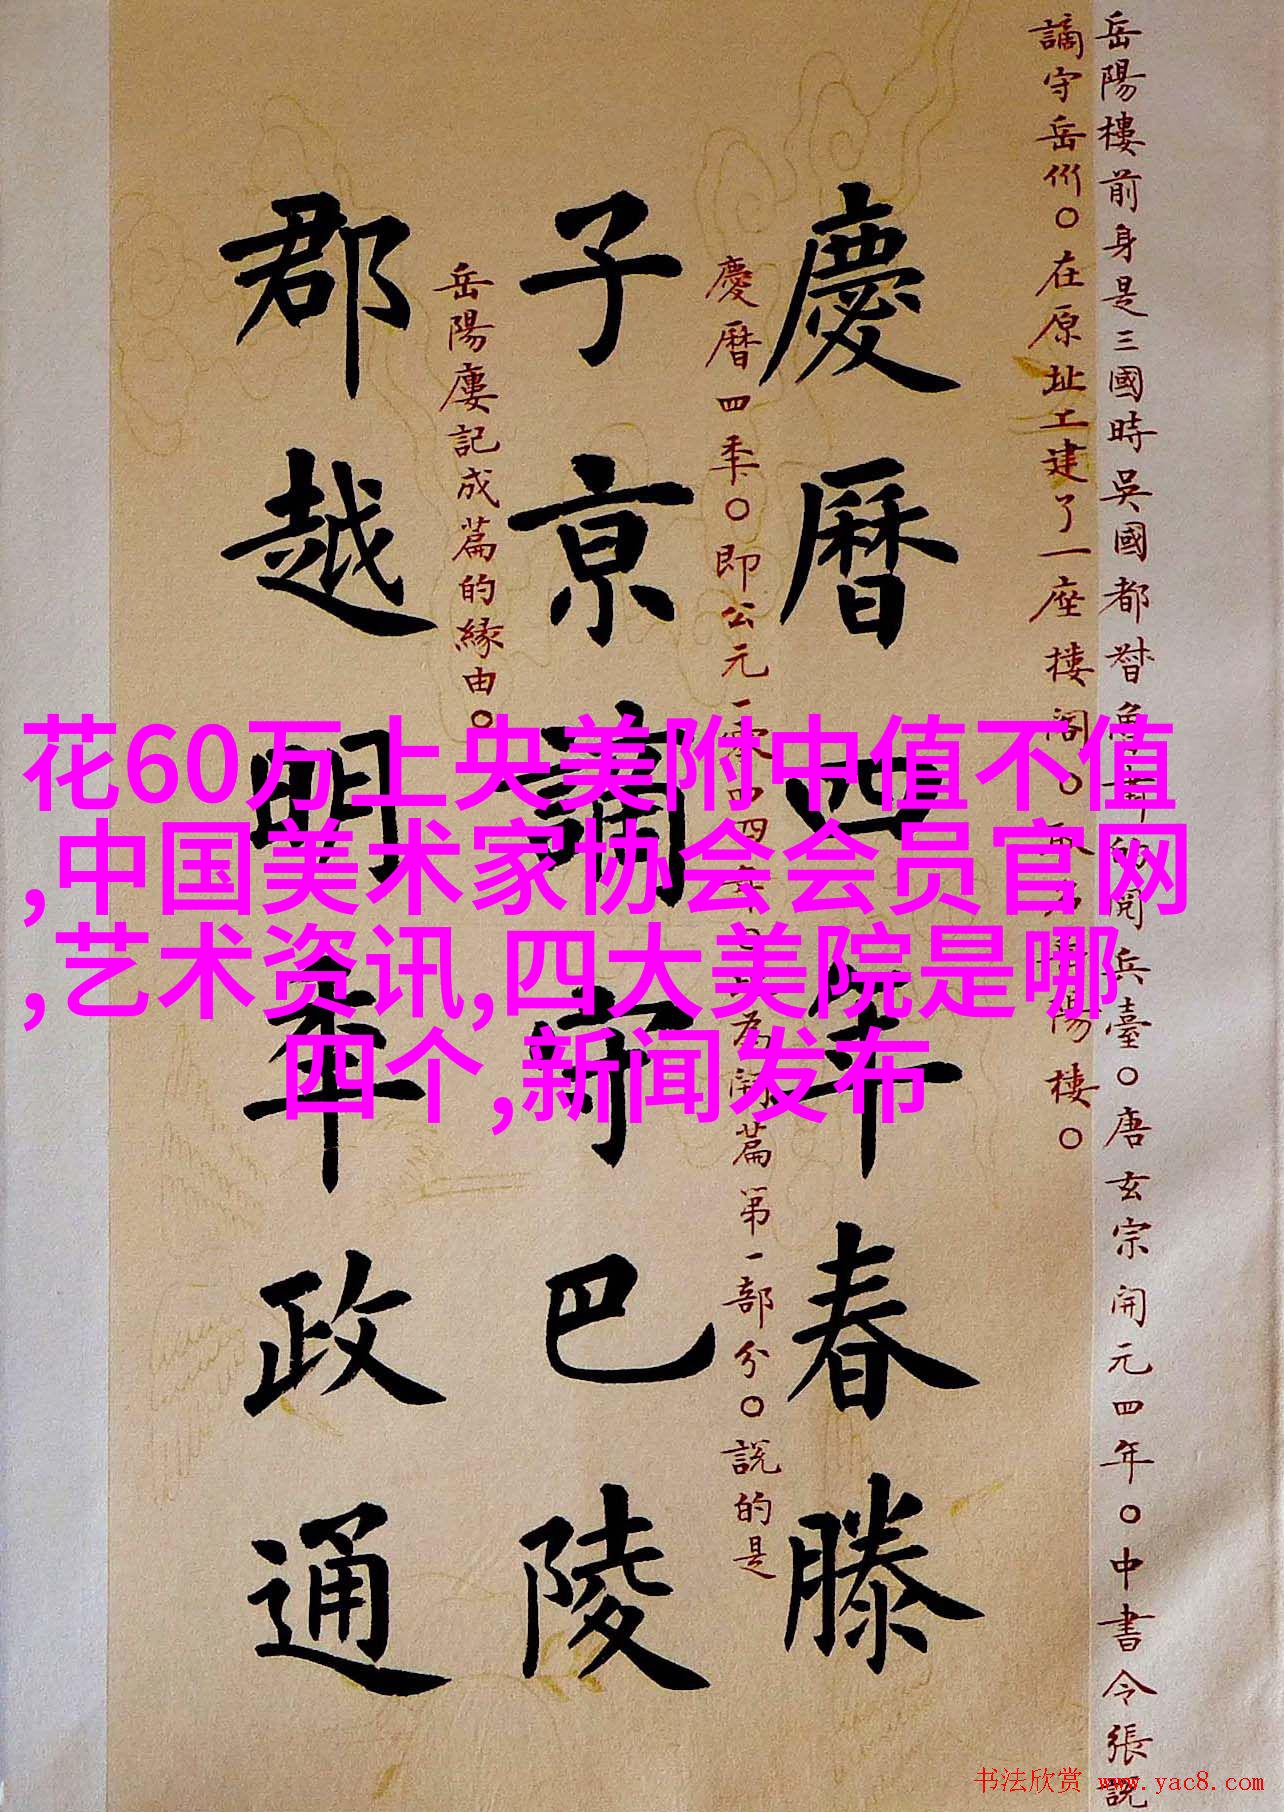 岳陽樓前身是三國時吳國都督魯肅的閱兵臺○唐玄宗開元四年○中書令張説
謫守岳州○在原址工建了一座樓閣○取名岳陽樓○
慶曆四年春滕
慶曆四季○即公元一零四四年○為開篇第一部分○説的是
子京謫守巴陵
岳陽廔記成篇的緣由○
郡越明年政通
花60万上央美附中值不值
,中国美术家协会会员官网
,艺术资讯,四大美院是哪
四个,新闻发布
书法欣赏 www.yac8.com